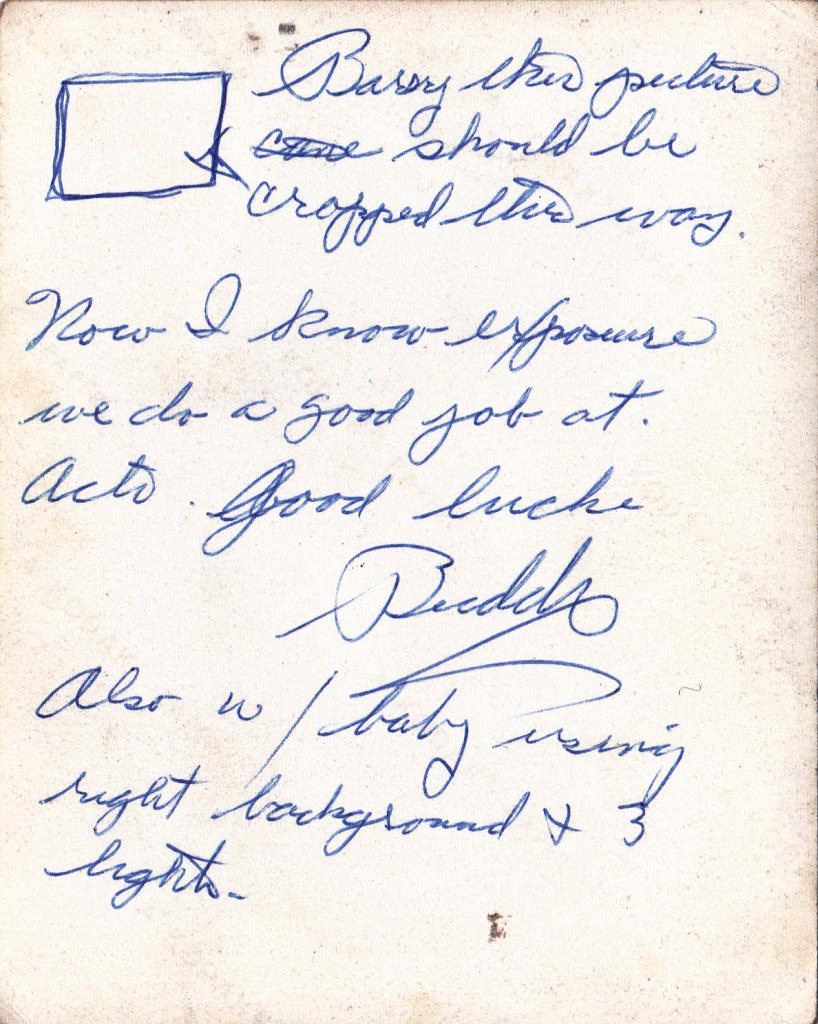 Barry this picture
should be
cropped this way.
Now I know exposure
we do a good job at.
Good luck
Buddy
Also w/ baby using
right background & 3
lights.